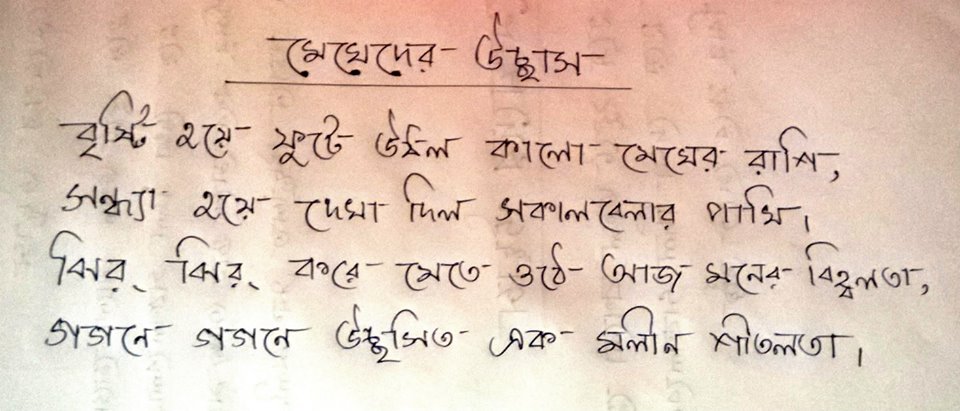 মেঘেদের উচ্ছাস
বৃষ্টি হয়ে ফুটে উঠল কালো মেঘের রাশি,
সন্ধ্যা হয়ে দেখা দিল সকালবেলার পাখি।
ঝির্ ঝির্ করে মেতে ওঠে আজ মনের বিহ্বলতা,
গগনে গগনে উচ্ছ্বসিত এক মলীন শীতলতা।